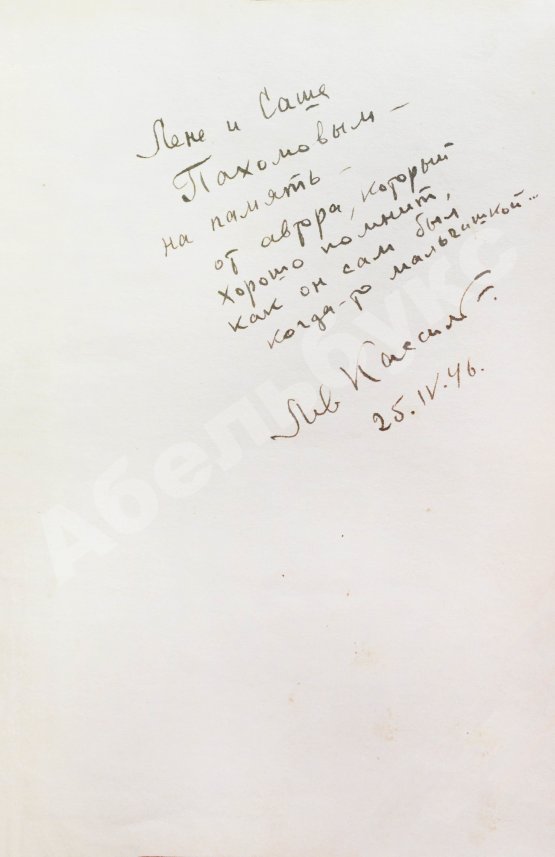 Лене и Саше
Пахомовым –
на память –
от автора, который
хорошо помнит,
как он сам был
когда-то мальчишкой...
Лев Кассиль.
25.IV.46.
Абельбукс